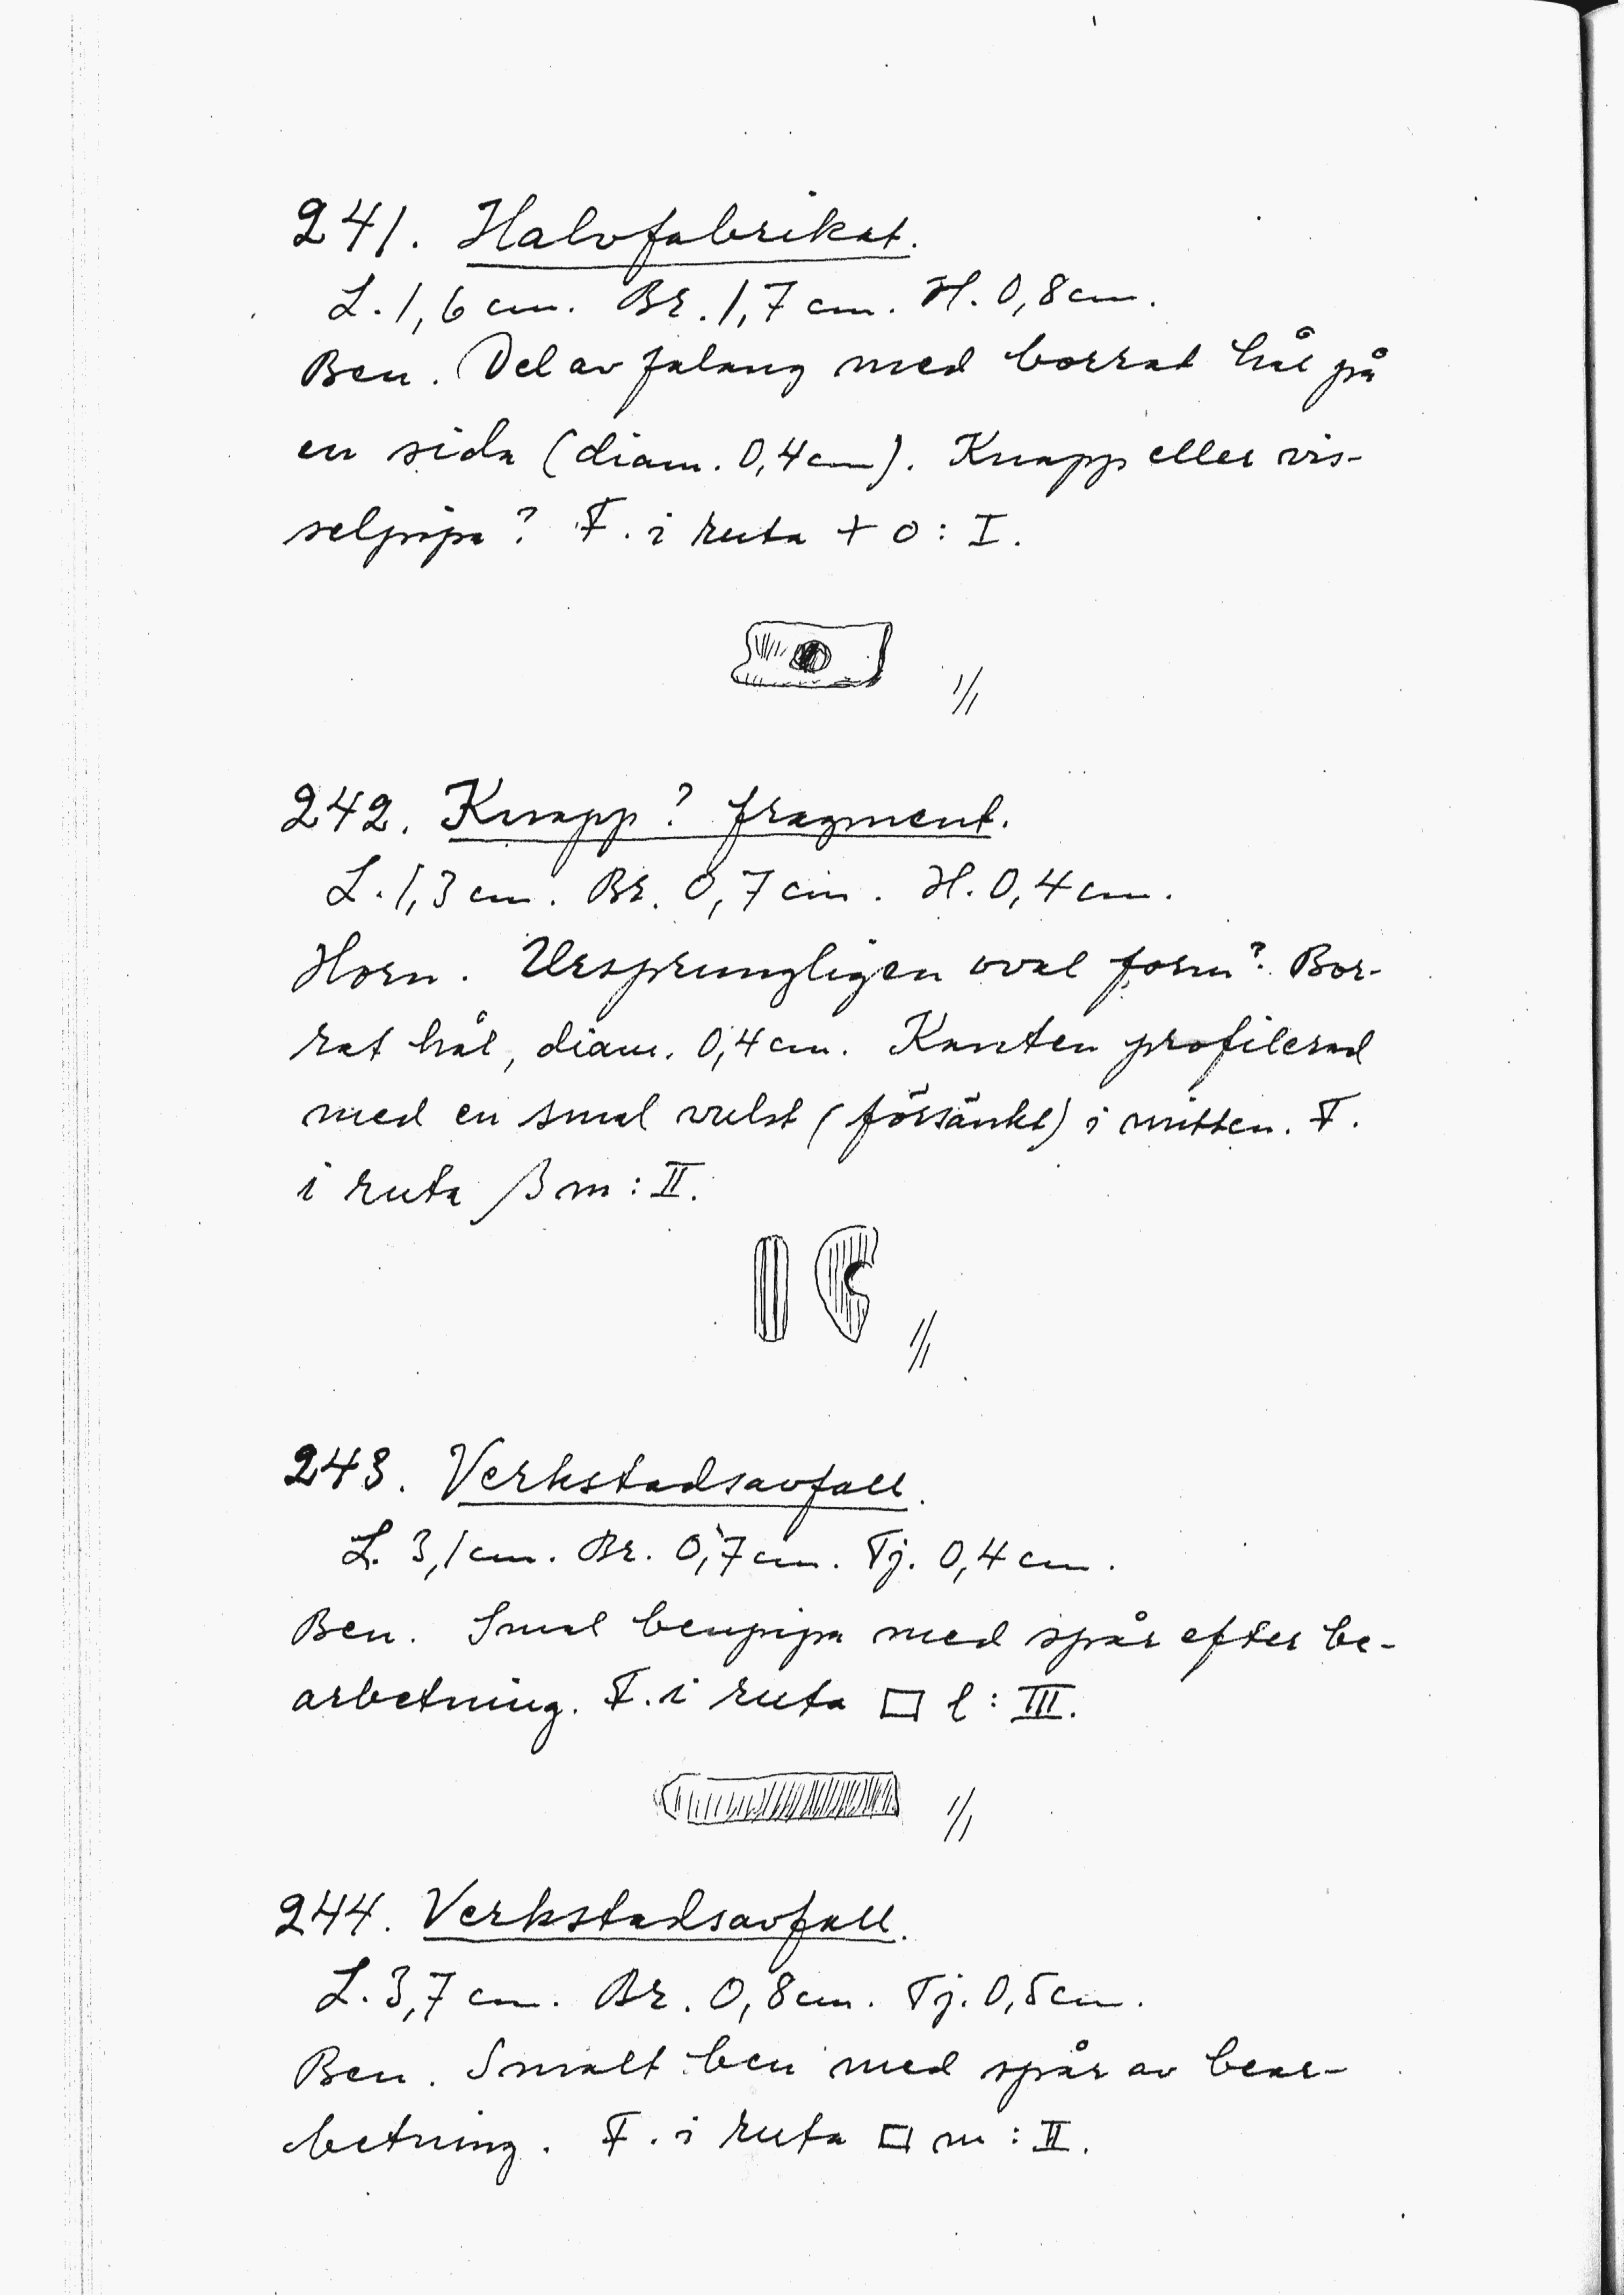 241. Halvfabrikat.
L. 1,6 cm. Br. 1,7 cm. H. 0,8 cm.
Ben. Del av falang med borrat hål på
en sida (diam. 0,4 cm). Knapp eller vis-
selpipa? F. i ruta + o : I.
1/1
242. Knapp? fragment.
L. 1,3 cm. Br. 0,7 cm. H. 0,4 cm.
Horn. Ursprungligen oval form? Bor-
rat hål, diam. 0,4 cm. Kanten profilerad
med en smal vulst (försänkt) i mitten. F.
i ruta β m : II.
1/1
243. Verkstadsavfall.
L. 3,1 cm. Br. 0,7 cm. Tj. 0,4 cm.
Ben. Smal benpipa med spår efter be-
arbetning. F. i ruta □ l : III.
1/1
244. Verkstadsavfall.
L. 3,7 cm. Br. 0,8 cm. Tj. 0,5 cm.
Ben. Smalt ben med spår av bear-
betning. F. i ruta □ m : II.